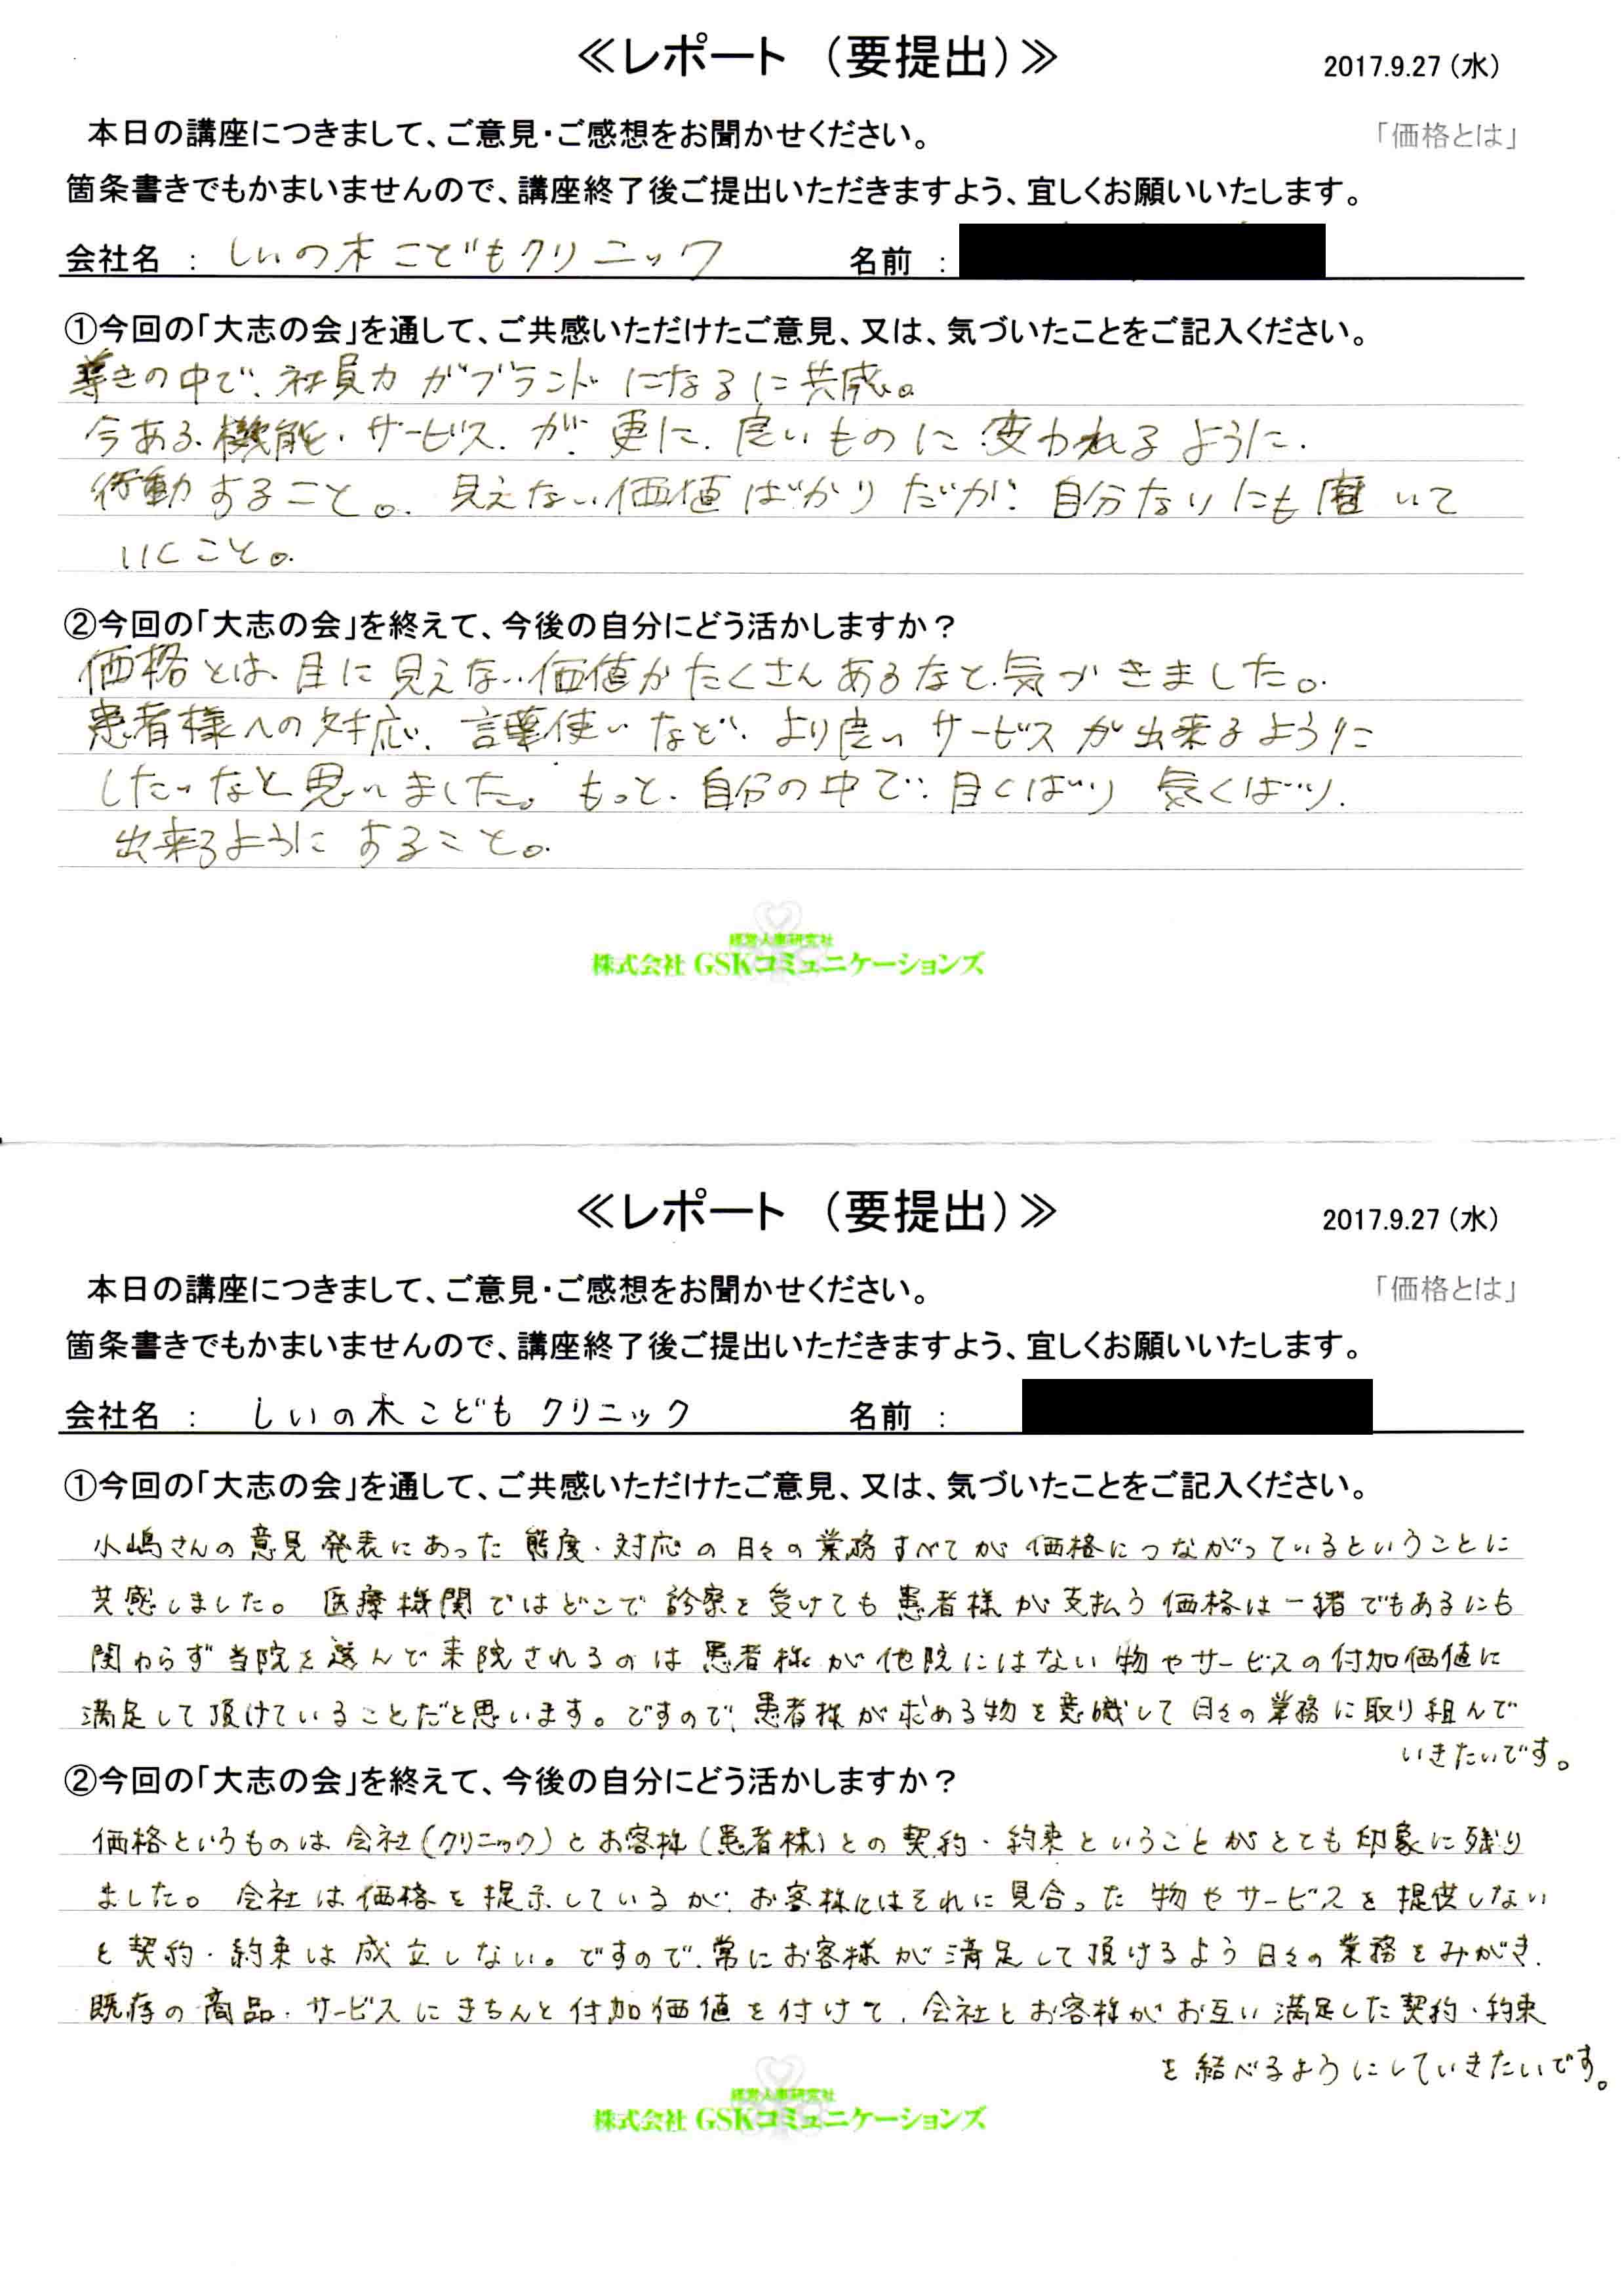 ≪レポート （要提出）≫
2017.9.27（水）
本日の講座につきまして、ご意見・ご感想をお聞かせください。
「価格とは」
箇条書きでもかまいませんので、講座終了後ご提出いただきますよう、宜しくお願いいたします。
会社名 ： しいの木こどもクリニック 名前 ：
①今回の「大志の会」を通して、ご共感いただけたご意見、又は、気づいたことをご記入ください。
導きの中で、社員力がブランドになるに共感。
今ある機能・サービスが更に良いものに変われるように
行動すること。見えない価値ばかりだが自分なりにも磨いて
いくこと。
②今回の「大志の会」を終えて、今後の自分にどう活かしますか？
価格とは、目に見えない価値がたくさんあるなと気づきました。
患者様への対応、言葉使いなど、より良いサービスが出来るように
したいなと思いました。もっと、自分の中で目くばり気くばり
出来るようにすること。
経営人事研究社
株式会社 GSKコミュニケーションズ
≪レポート （要提出）≫
2017.9.27（水）
本日の講座につきまして、ご意見・ご感想をお聞かせください。
「価格とは」
箇条書きでもかまいませんので、講座終了後ご提出いただきますよう、宜しくお願いいたします。
会社名 ： しいの木こどもクリニック 名前 ：
①今回の「大志の会」を通して、ご共感いただけたご意見、又は、気づいたことをご記入ください。
小嶋さんの意見発表にあった態度・対応の日々の業務すべてが価格につながっているということに
共感しました。医療機関ではどこで診察を受けても患者様が支払う価格は一緒でもあるにも
関わらず当院を選んで来院されるのは患者様が他院にはない物やサービスの付加価値に
満足して頂けていることだと思います。ですので、患者様が求める物を意識して日々の業務に取り組んで
いきたいです。
②今回の「大志の会」を終えて、今後の自分にどう活かしますか？
価格というものは会社（クリニック）とお客様（患者様）との契約・約束ということがとても印象に残り
ました。会社は価格を提示しているが、お客様にはそれに見合った物やサービスを提供しない
と契約・約束は成立しない。ですので、常にお客様が満足して頂けるよう日々の業務をみがき、
既存の商品・サービスにきちんと付加価値を付けて、会社とお客様がお互い満足した契約・約束
を結べるようにしていきたいです。
経営人事研究社
株式会社 GSKコミュニケーションズ